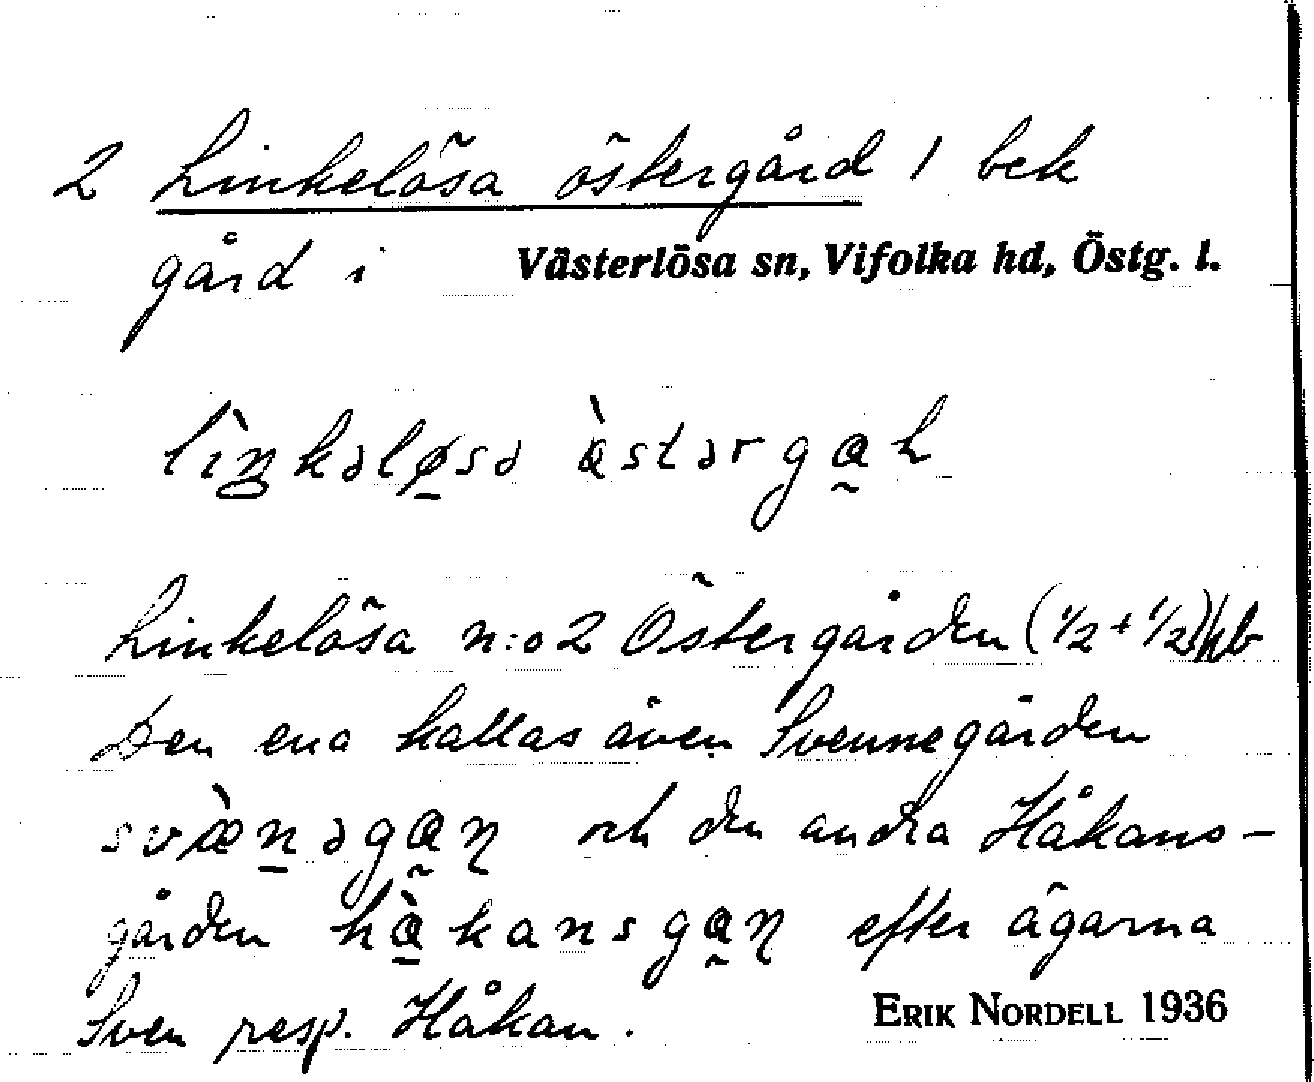 2 Linkelösa östergård 1 bek
gård i Västerlösa sn, Vifolka hd, Östg. l.
Linkelösa n:o 2 Östergården (1/2 + 1/2)
Den ena kallas även Svennegården
och den andra Håkans-
gården efter ägarna
Sven resp. Håkan.
ERIK NORDELL 1936